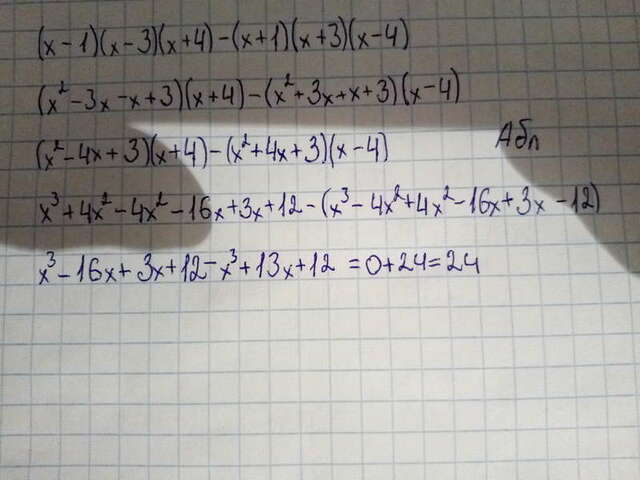 (x-1)(x-3)(x+4)-(x+1)(x+3)(x-4)
(x²-3x-x+3)(x+4)-(x²+3x+x+3)(x-4)
Абл
(x²-4x+3)(x+4)-(x²+4x+3)(x-4)
x³+4x²-4x²-16x+3x+12-(x³-4x²+4x²-16x+3x-12)
x³-16x+3x+12-x³+13x+12=0+24=24